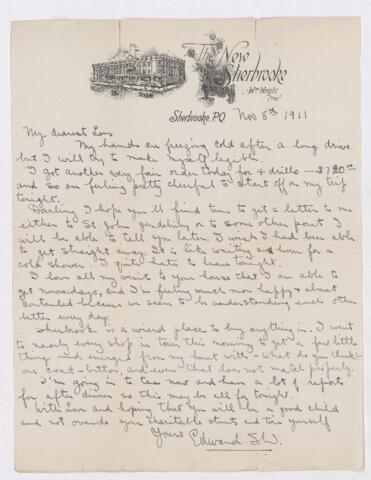 The New
Sherbrooke
Wm Wright
Prop.
Sherbrooke, P.Q. Nov 8th 1911
My dearest Lois
My hands are freezing cold after a long drive
but I will try to make myself legible.
I got another very fair order today for 4 drills — $720.00
and so am feeling pretty cheerful to start off on my trip
tonight.
Darling I hope you'll find time to get a letter to me
either to St. John gen delivery or to some other point I
will be able to tell you later. I wish I had been able
to get straight away. It is like waiting an hour for a
cold shower. I quite hate to leave tonight.
I love all my visit to your house that I am able to
get nowadays, and I'm feeling much more happy & almost
contented because we seem to be understanding each other
better every day.
Sherbrook is a wierd place to buy anything in. I went
to nearly every shop in town this morning to get a few little
things and emerged from my hunt with — what do you think! —
one coat-button, and even that does not match properly.
I'm going in to tea now and have a lot of reports
for after dinner so this may be all for tonight.
With Love and hoping that you will be a good child
and not overdo your charitable stunts and tire yourself
Yours Edward S.W.